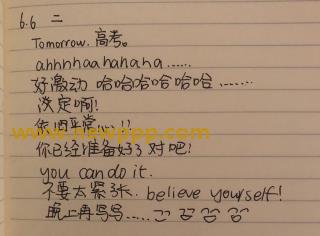 6.6 二
Tomorrow. 高考。
ahhhhaahahaha......
好激动 哈哈哈哈哈哈.......
淡定啊!
依旧平常心!!
www.newppp.com
你已经准备好了对吧!
you can do it.
不要太紧张. believe yourself!
晚上再写写.....